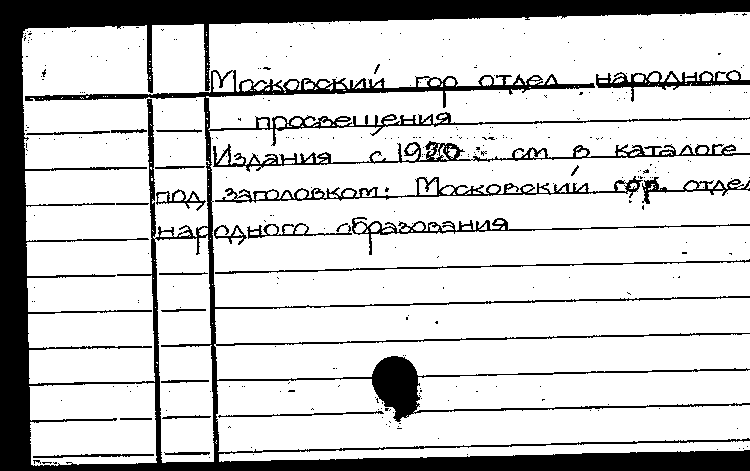 Московский гор отдел народного
просвещения
Издания с 1920 см в каталоге
под заголовком: Московский гор. отдел
народного образования